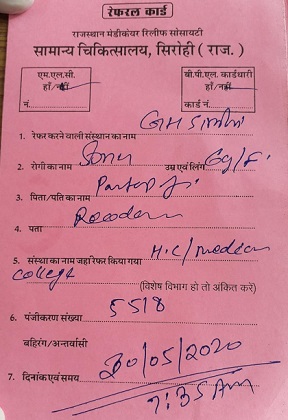 रेफरल कार्ड
राजस्थान मेडीकेयर रिलीफ सोसायटी
सामान्य चिकित्सालय, सिरोही ( राज. )
एम.एल.सी. बी.पी.एल. कार्डधारी
हाँ/नहीं हाँ/नहीं
नं. कार्ड नं.
1. रेफर करने वाली संस्थान का नाम GH Sirohi
2. रोगी का नाम Sonu उम्र एवं लिंग
3. पिता/पति का नाम Partap ji
4. पता
5. संस्था का नाम जहां रेफर किया गया H.C/
College (विशेष विभाग हो तो अंकित करें)
6. पंजीकरण संख्या 5518
बहिरंग/अन्तर्वासी
7. दिनांक एवं समय 30/05/2020
7:35 Am